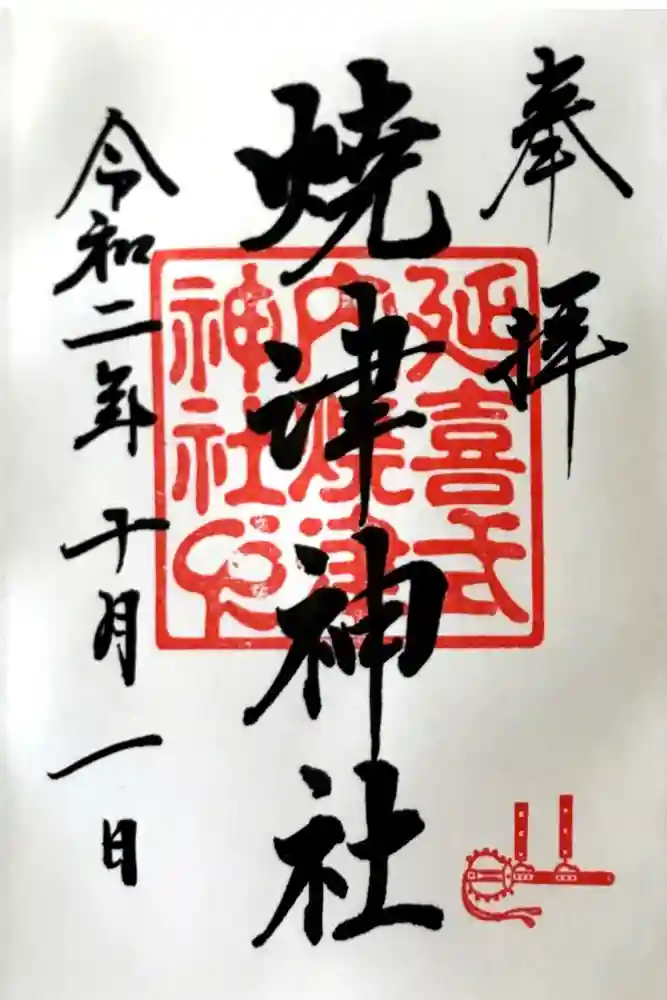 奉拝
燒津神社
延喜式
内燒津
神社印
令和二年十月一日